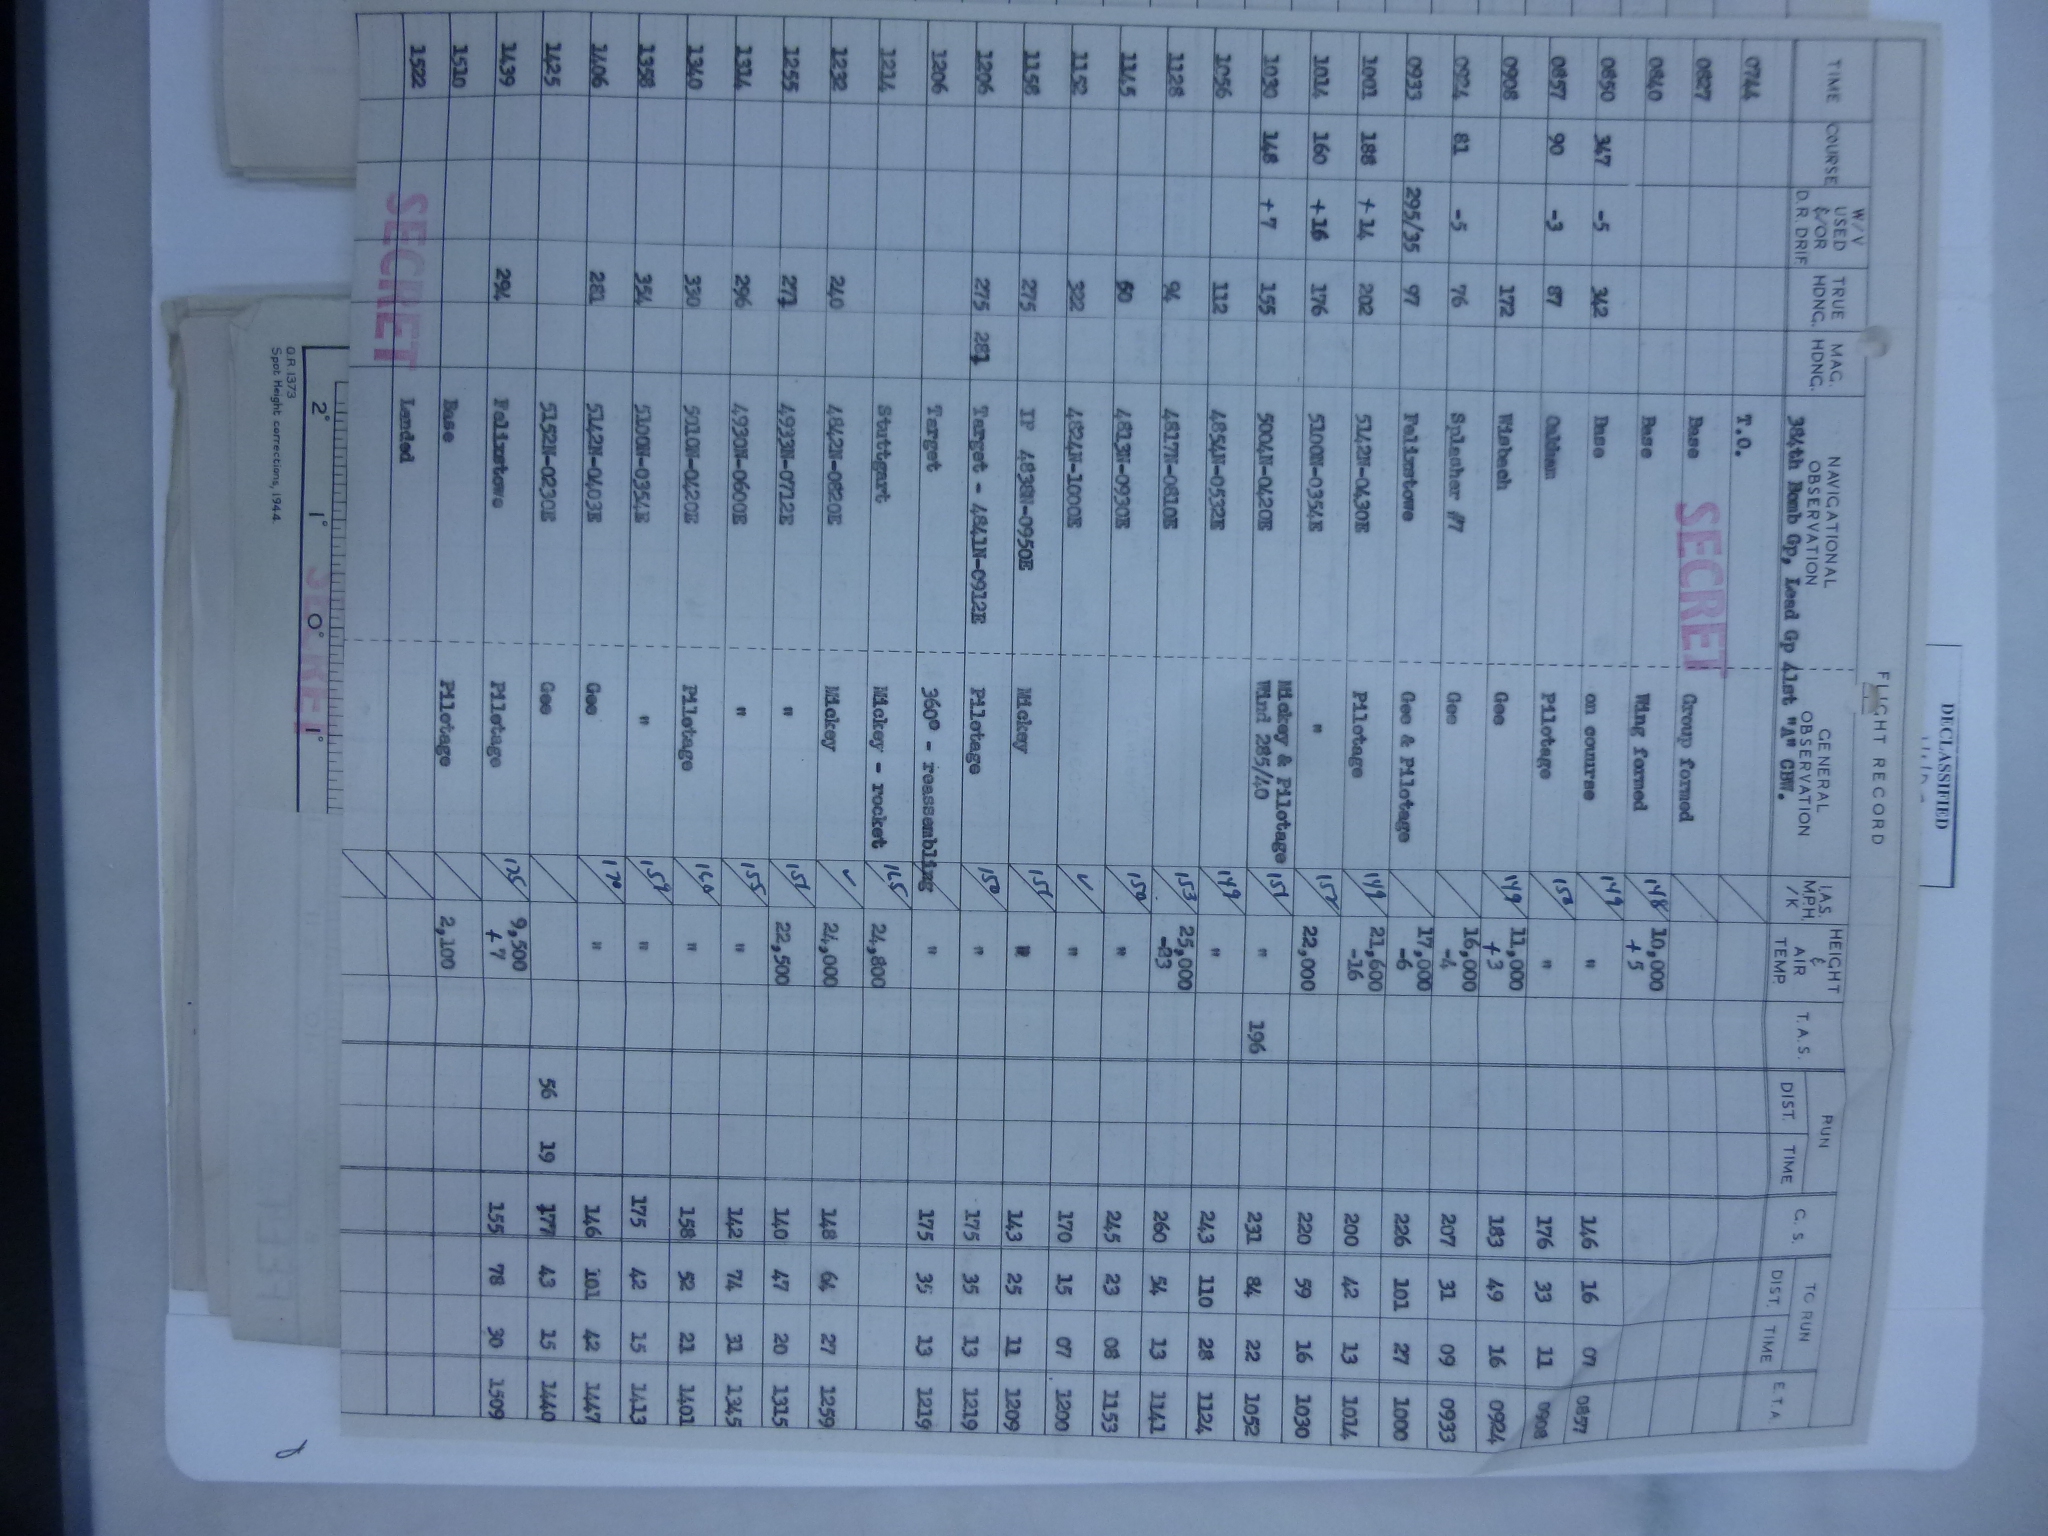 DECLASSIFIED
FLIGHT RECORD
TIME COURSE W/V USED &/OR D.R. DRIF. TRUE HDNG. MAG. HDNG. NAVIGATIONAL OBSERVATION GENERAL OBSERVATION I.A.S. MPH. /K HEIGHT & AIR TEMP. T. A. S. RUN DIST. TIME G. S. TO RUN DIST. TIME E. T. A.
384th Bomb Gp, Lead Gp 41st "A" CBW.
0744 T.O.
SECRET
0827 Base Group formed
0840 Base Wing formed 148 10,000 +5
0850 347 -5 342 Base on course 149 " 146 16 07 0857
0857 90 -3 87 Oakham Pilotage 150 " 176 33 11 0908
0908 172 Wisbech Gee 149 11,000 +3 183 49 16 0924
0924 81 -5 76 Splasher #7 Gee 16,000 -4 207 31 09 0933
0933 295/35 97 Felixstowe Gee & Pilotage 17,000 -6 226 101 27 1000
1001 188 +14 202 5142N-0430E Pilotage 149 21,600 -16 200 42 13 1014
1014 160 +16 176 5100N-0354E " 150 22,000 220 59 16 1030
1030 148 +7 155 5004N-0420E Mickey & Pilotage Wind 285/40 151 " 196 231 84 22 1052
1056 112 4854N-0532E 149 " 243 110 28 1124
1128 94 4817N-0810E 153 25,000 -33 260 54 13 1141
1145 60 4813N-0930E 150 " 245 23 08 1153
1152 322 4824N-1000E ✓ " 170 15 07 1200
1158 275 IP 4838N-0950E Mickey 151 " 143 25 11 1209
1206 275 281 Target - 4841N-0912E Pilotage 150 " 175 35 13 1219
1206 Target 360° - reassembling " 175 35 13 1219
1214 Stuttgart Mickey - rocket 165 24,800
1232 240 4842N-0820E Mickey ✓ 24,000 148 64 27 1259
1255 271 4933N-0712E " 151 22,500 140 47 20 1315
1314 296 4930N-0600E " 155 " 142 74 31 1345
1340 330 5010N-0420E Pilotage 160 " 158 52 21 1401
1358 354 5100N-0354E " 159 " 175 42 15 1413
1406 281 5142N-0403E Gee 170 " 146 101 42 1447
1425 5152N-0230E Gee 56 19 177 43 15 1440
1439 294 Felixstowe Pilotage 175 9,500 +7 155 78 30 1509
1510 Base Pilotage 2,100
1522 Landed
SECRET
2° 1° 0° 1°
SECRET
G.R. 1373
Spot Height corrections, 1944.